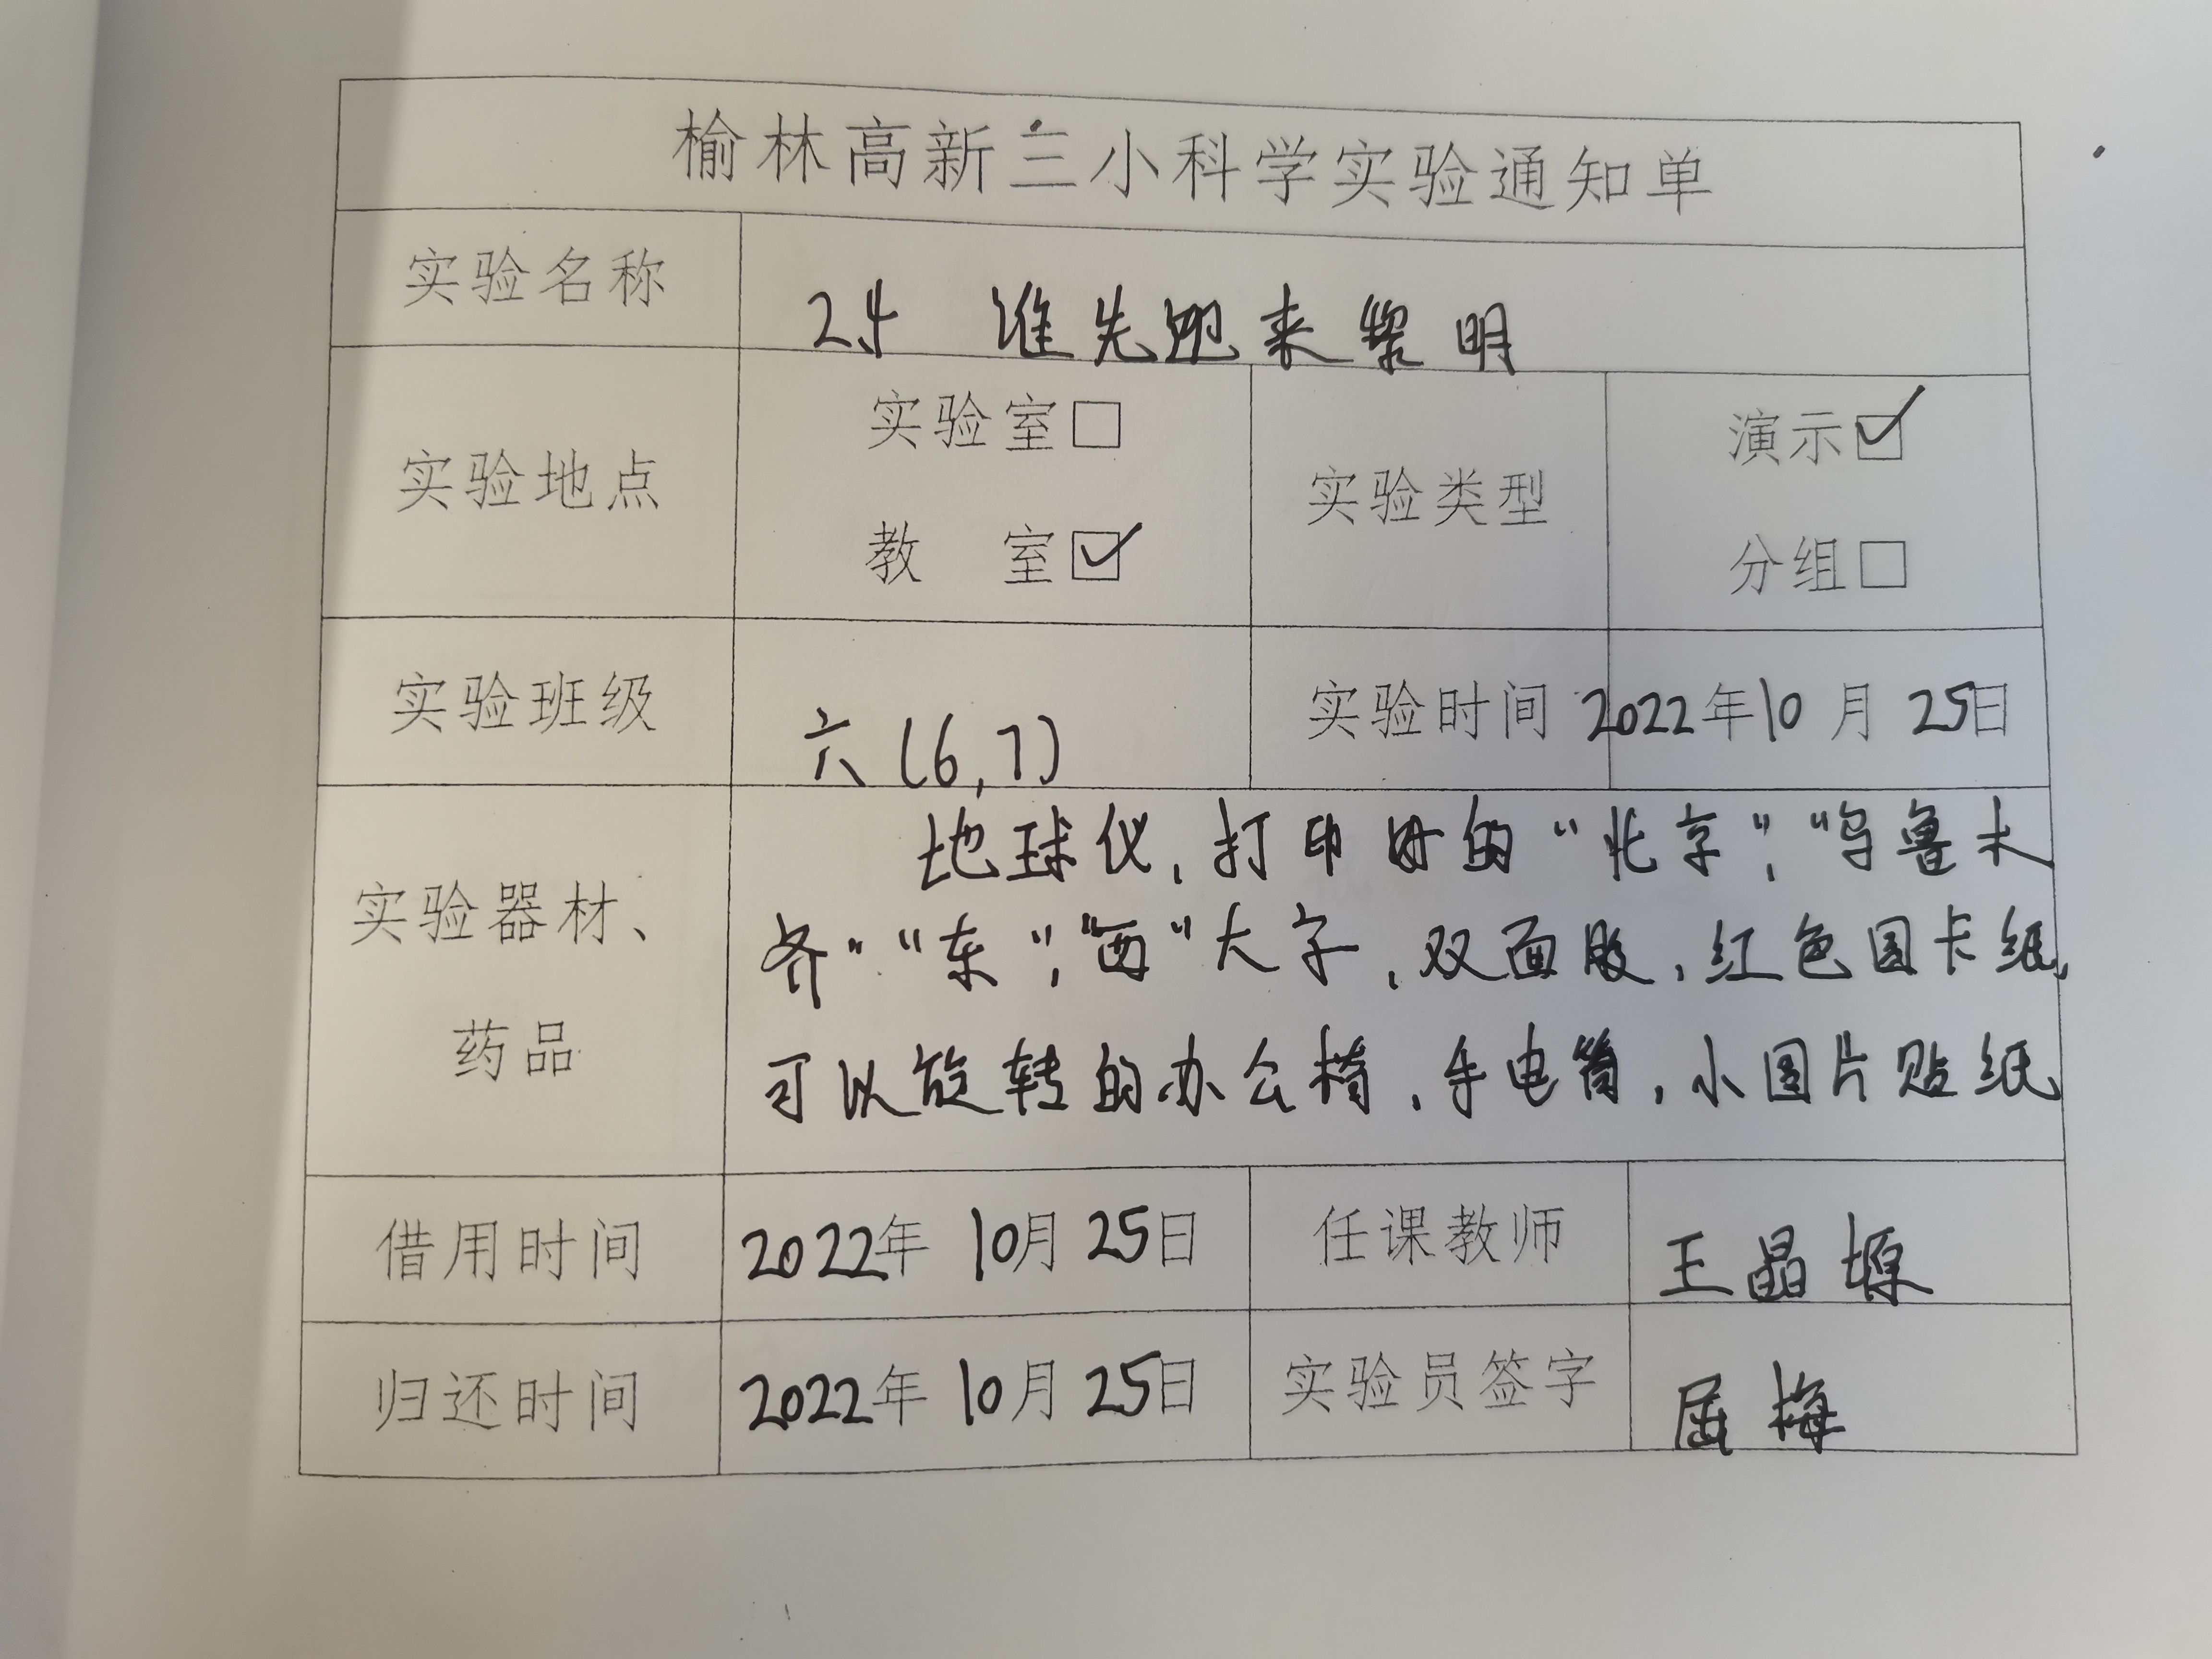 榆林高新三小科学实验通知单
实验名称
2.4 谁先迎来黎明
实验地点
实验室□
教 室☑
实验类型
演示☑
分组□
实验班级
六(6,7)
实验时间
2022年10月25日
实验器材、
药品
地球仪,打印好的“北京”,“乌鲁木
齐”“东”,“西”大字,双面胶,红色圆卡纸,
可以旋转的办公椅,手电筒,小圆片贴纸
借用时间
2022年10月25日
任课教师
王晶塬
归还时间
2022年10月25日
实验员签字
屈梅